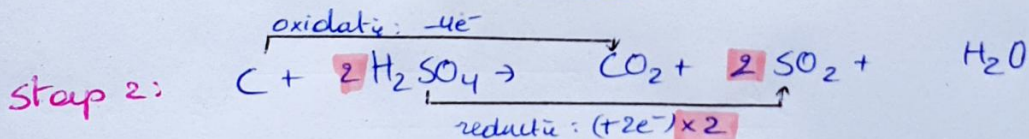 oxidatie: -4e⁻
stap 2: C + 2 H₂SO₄ → CO₂ + 2 SO₂ + H₂O
reductie: (+2e⁻) × 2